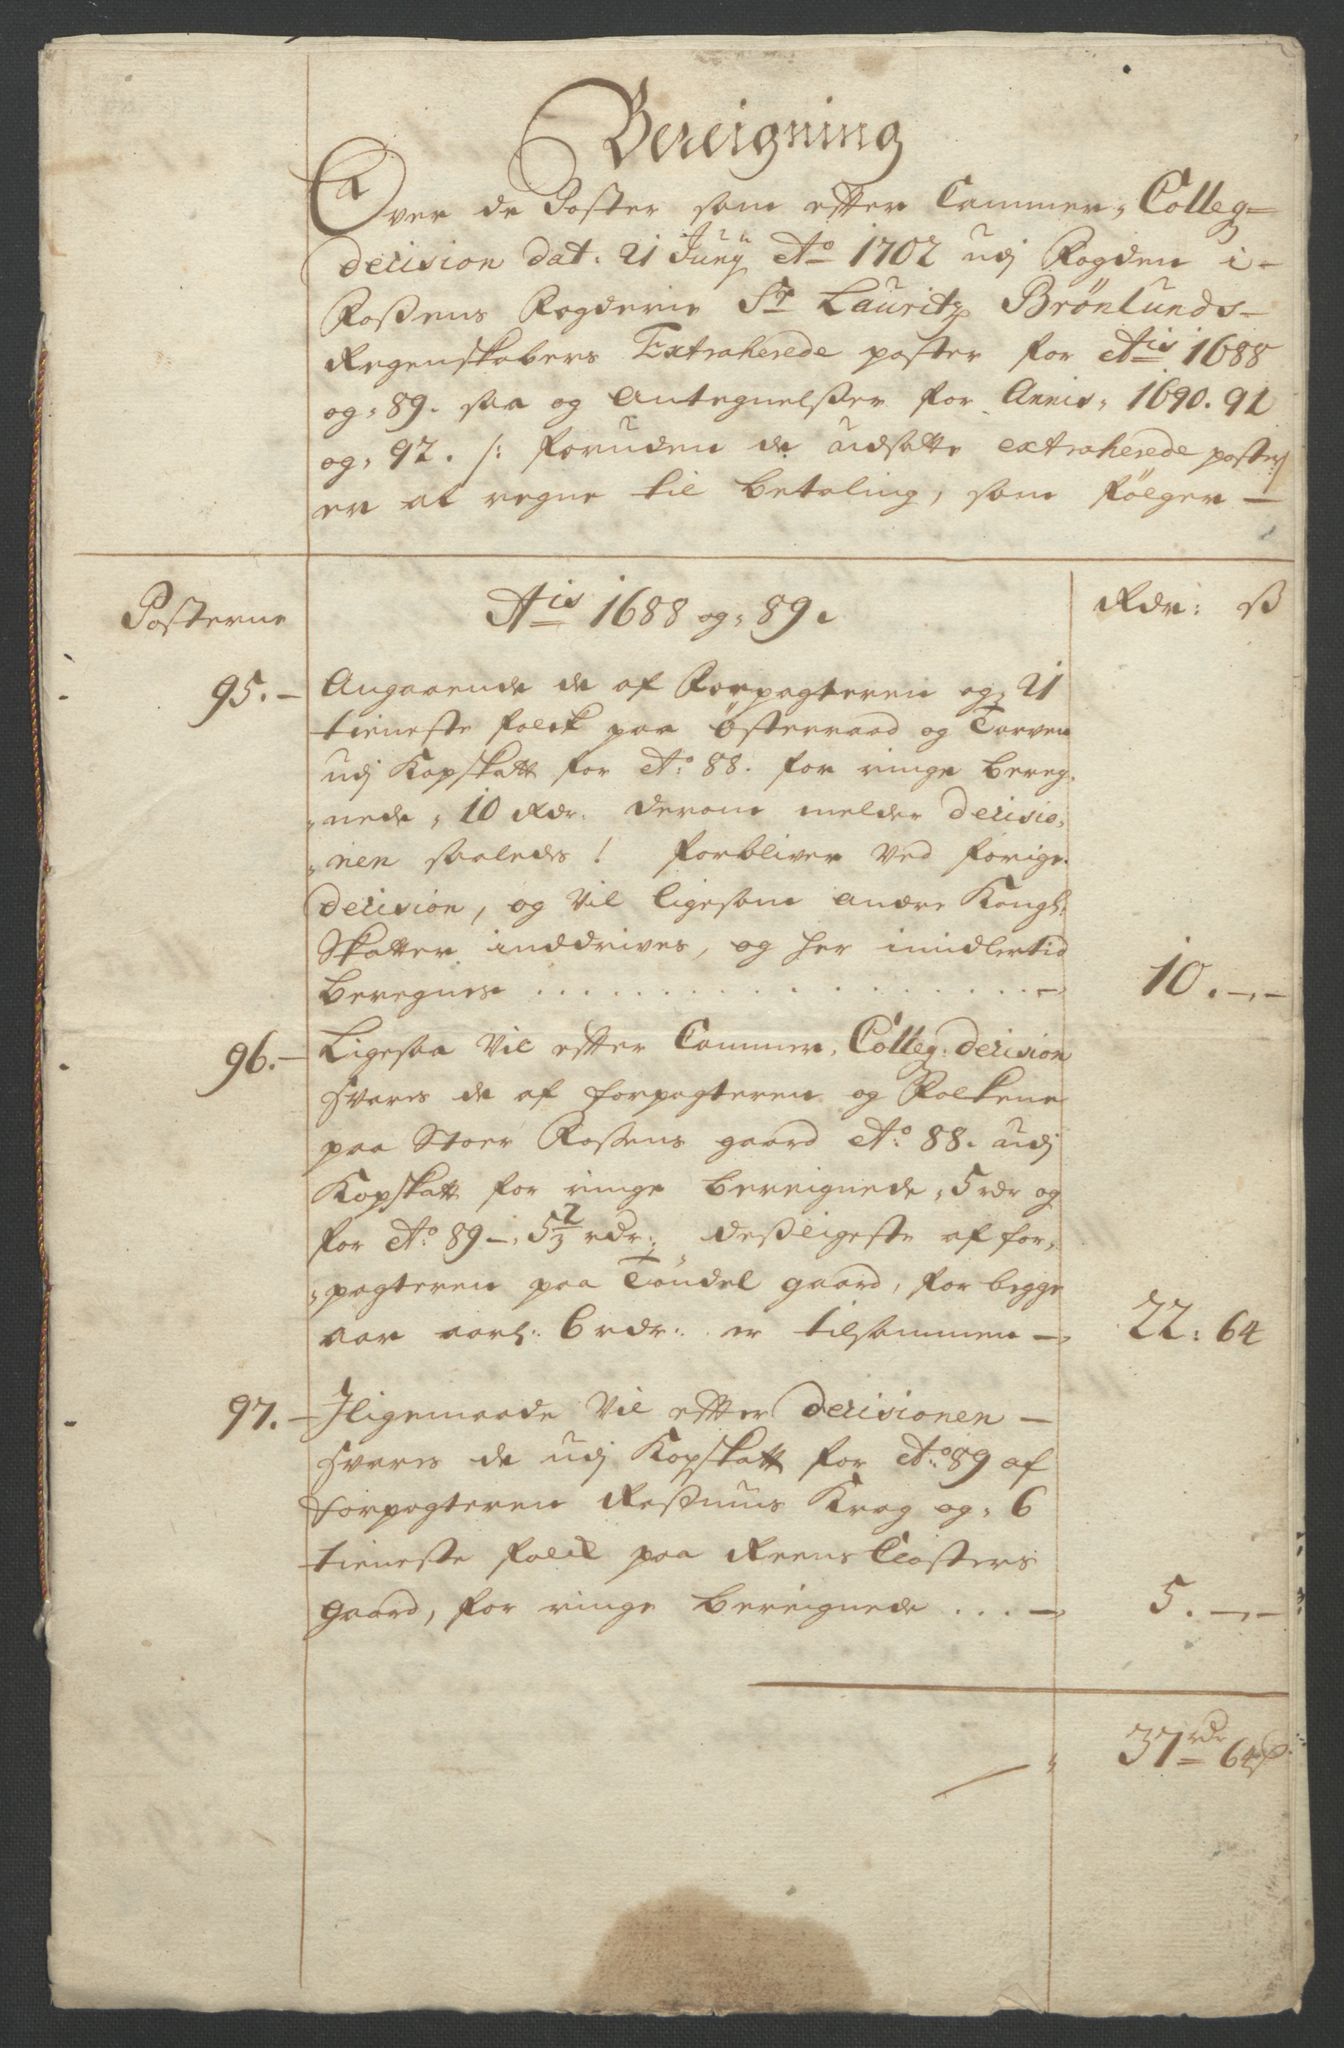 Bereigning
Over de Poster som efter Cammer, Colleg=
decision dat: 21 Junij Ao 1702 udj Fogden i-
Foßens Fogderie Sr Lauritz Brönlunds-
Regenskabers Extraherede poster for Ais 1688
og, 89. saa og Antegnelßer for Annis, 1690. 91
og, 92. /: foruden de udsatte extraherede poster/
er at regne til betaling, som følger -
Posterne
Ais 1688 og, 89.
Rdr: ß
95. - Angaaende de af Forpagteren og, 21
tieneste folck paa Østeraad og Tarven
udj Kopskatt for Ao: 88. for ringe bereg,
,nede, 10 Rdr: derom melder decisio,
,nen saaledes! forbliver ved forige
decision, og vil ligesom andre Kongl:
Skatter inddrives, og her imidlertid
beregnes . . . . . . . . . . . . . . . . - 10. -,-
96. - Ligesaa vil efter Cammer, Colleg: decision
svares de af forpagteren og Folkene
paa Stoer Foßens gaard Ao: 88. udj
Kopskatt for ringe bereignede, 5 rdr og
for Ao: 89 -, 5 2/3 rdr:, desligeste af for,
,pagteren paa Tøndel gaard, for begge
aar aarl: 6 rdr: er tilsammen - 22: 64
97. - Iligemaade vil efter decisionen -
svares de udj Kopskatt for Ao: 89 af
forpagteren Rasmus Krag og, 6
tieneste folck paa Reens Closters
gaard, for ringe bereignede . . . - 5. -,-
37 rdr 64 ß